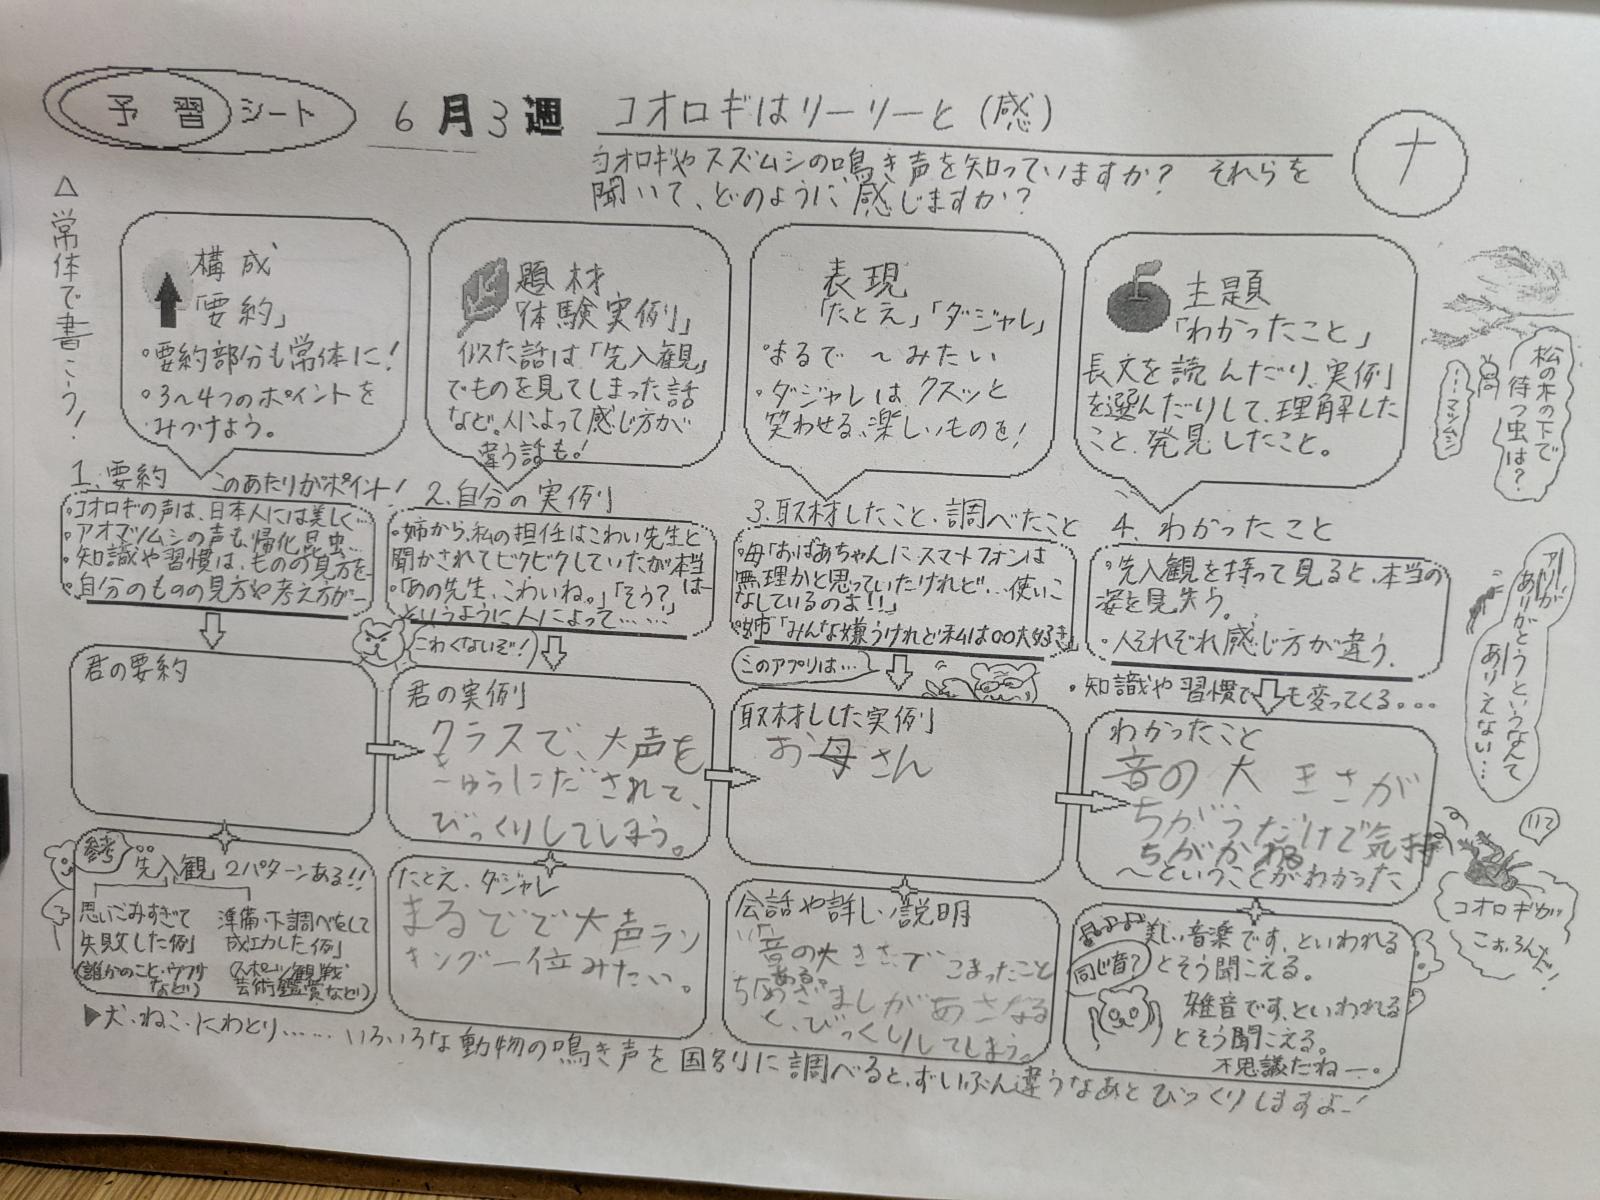 予習シート
6月3週
コオロギはリーリーと(感)
コオロギやスズムシの鳴き声を知っていますか? それらを
聞いて、どのように感じますか?
ナ
△常体で書こう!
構成
「要約」
・要約部分も常体に!
・3〜4つのポイントを
みつけよう。
題材
「体験実例」
似た話は「先入観」
でものを見てしまった話
など。人によって感じ方が
違う話も!
表現
「たとえ」「ダジャレ」
・まるで〜みたい
・ダジャレはクスッと
笑わせる、楽しいものを!
主題
「わかったこと」
長文を読んだり、実例
を選んだりして、理解した
こと、発見したこと。
松の木の下で
待つ虫は?
…マツムシ
1.要約 このあたりがポイント!
・コオロギの声は、日本人には美しく…
・アオマツムシの声も、帰化昆虫…
・知識や習慣は、ものの見方を…
・自分のものの見方や考え方が…
2.自分の実例
・姉から、私の担任はこわい先生と
聞かされてビクビクしていたが本当は…
・「あの先生、こわいね。」「そう?」
というように人によって……
3.取材したこと、調べたこと
・母「おばあちゃんにスマートフォンは
無理かと思っていたけれど…使いこ
なしているのよ!!」
・姉「みんな嫌うけれど私は○○大好き」
4. わかったこと
・先入観を持って見ると、本当の
姿を見失う。
・人それぞれ感じ方が違う。
・知識や習慣でも変ってくる。。。
こわくないぞ!
このアプリは…
アリが
ありがとうというなんて
ありえない…
君の要約
君の実例
クラスで、大声を
きゅうにだされて、
びっくりしてしまう。
取材しした実例
お母さん
わかったこと
音の大きさが
ちがうだけで気持
ちがかわる
〜ということがわかった
参考
先入観 2パターンある!!
思いこみすぎて
失敗した例
(誰かのこと・ウワサ
など)
準備・下調べをして
成功した例
(スポーツ観戦
芸術鑑賞など)
たとえ、ダジャレ
まるでで大声ラン
キング一位みたい。
会話や詳しい説明
「音の大きさでこまったこと
ある?」
「めざましがあさなる
と、びっくりしてしまう。
美しい音楽です、といわれる
とそう聞こえる。
同じ音?
雑音です、といわれる
とそう聞こえる。
不思議だねー。
コオロギが
こおろんだ!
▶犬・ねこ・にわとり……いろいろな動物の鳴き声を国別に調べると、ずいぶん違うなあとびっくりしますよー!